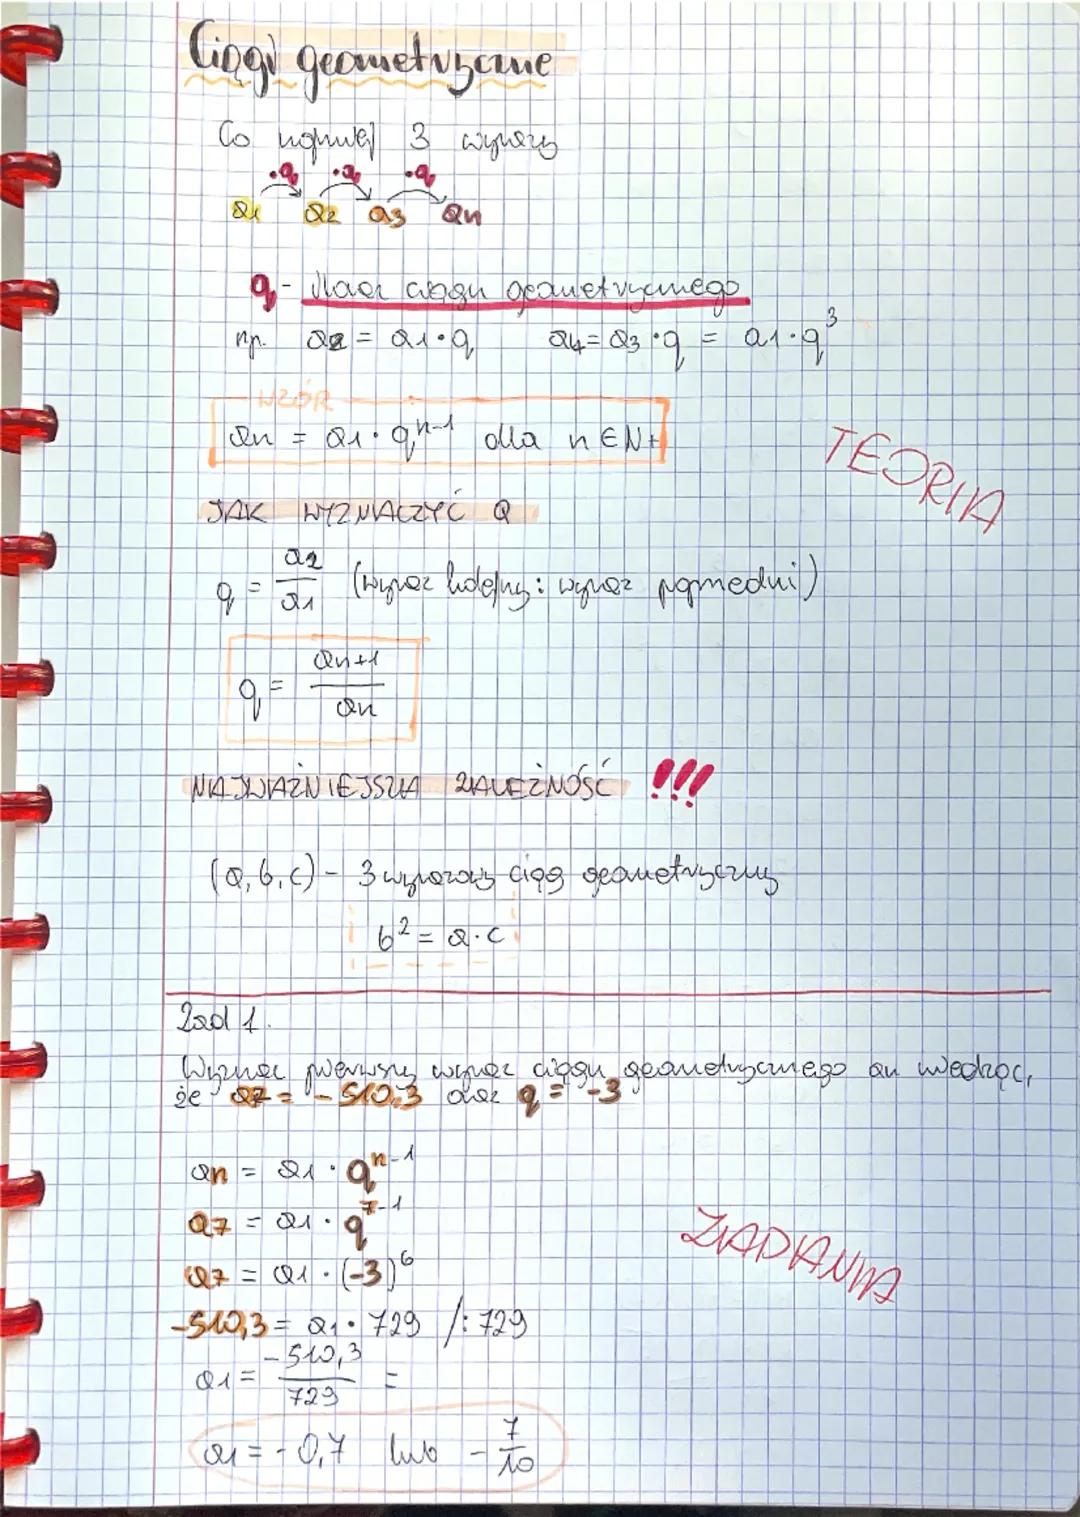 Ciągi geometryczne
Co najmniej 3 wyrazy
·q ·q ·q
a1 a2 a3 an
q - iloraz ciągu geometrycznego
np. a2 = a1·q a4 = a3·q = a1·q³
WZÓR
an = a1·qⁿ⁻¹ dla n ∈ N+
TEORIA
JAK WYZNACZYĆ Q
q = a2/a1 (wyraz kolejny : wyraz poprzedni)
q = an+1/an
NAJWAŻNIEJSZA ZALEŻNOŚĆ !!!
(a, b, c) - 3 wyrazowy ciąg geometryczny
b² = a·c
Zad 1.
Wyznacz pierwszy wyraz ciągu geometrycznego an wiedząc,
że a7 = -510,3 oraz q = -3
an = a1 · qⁿ⁻¹
a7 = a1 · q⁷⁻¹
a7 = a1 · (-3)⁶
ZADANIA
-510,3 = a1 · 729 /: 729
a1 = -510,3/729 =
a1 = -0,7 lub -7/10